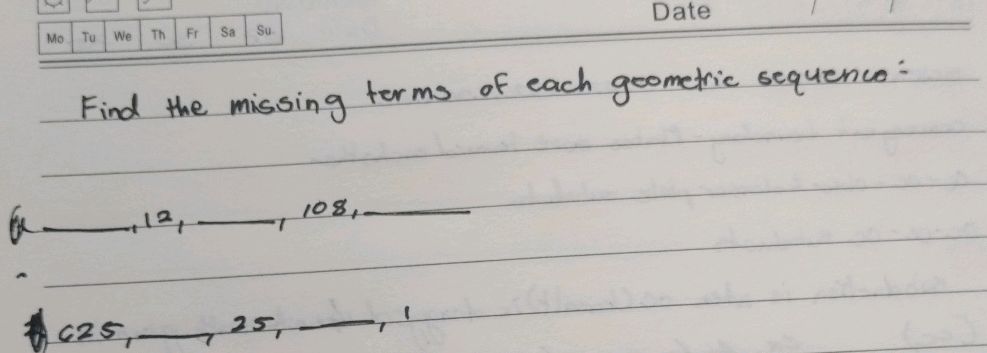 Date
Mo Tu We Th Fr Sa Su
Find the missing terms of each geometric sequence:
a ____, 12, ____, 108, ____
625, ____, 25, ____, 1